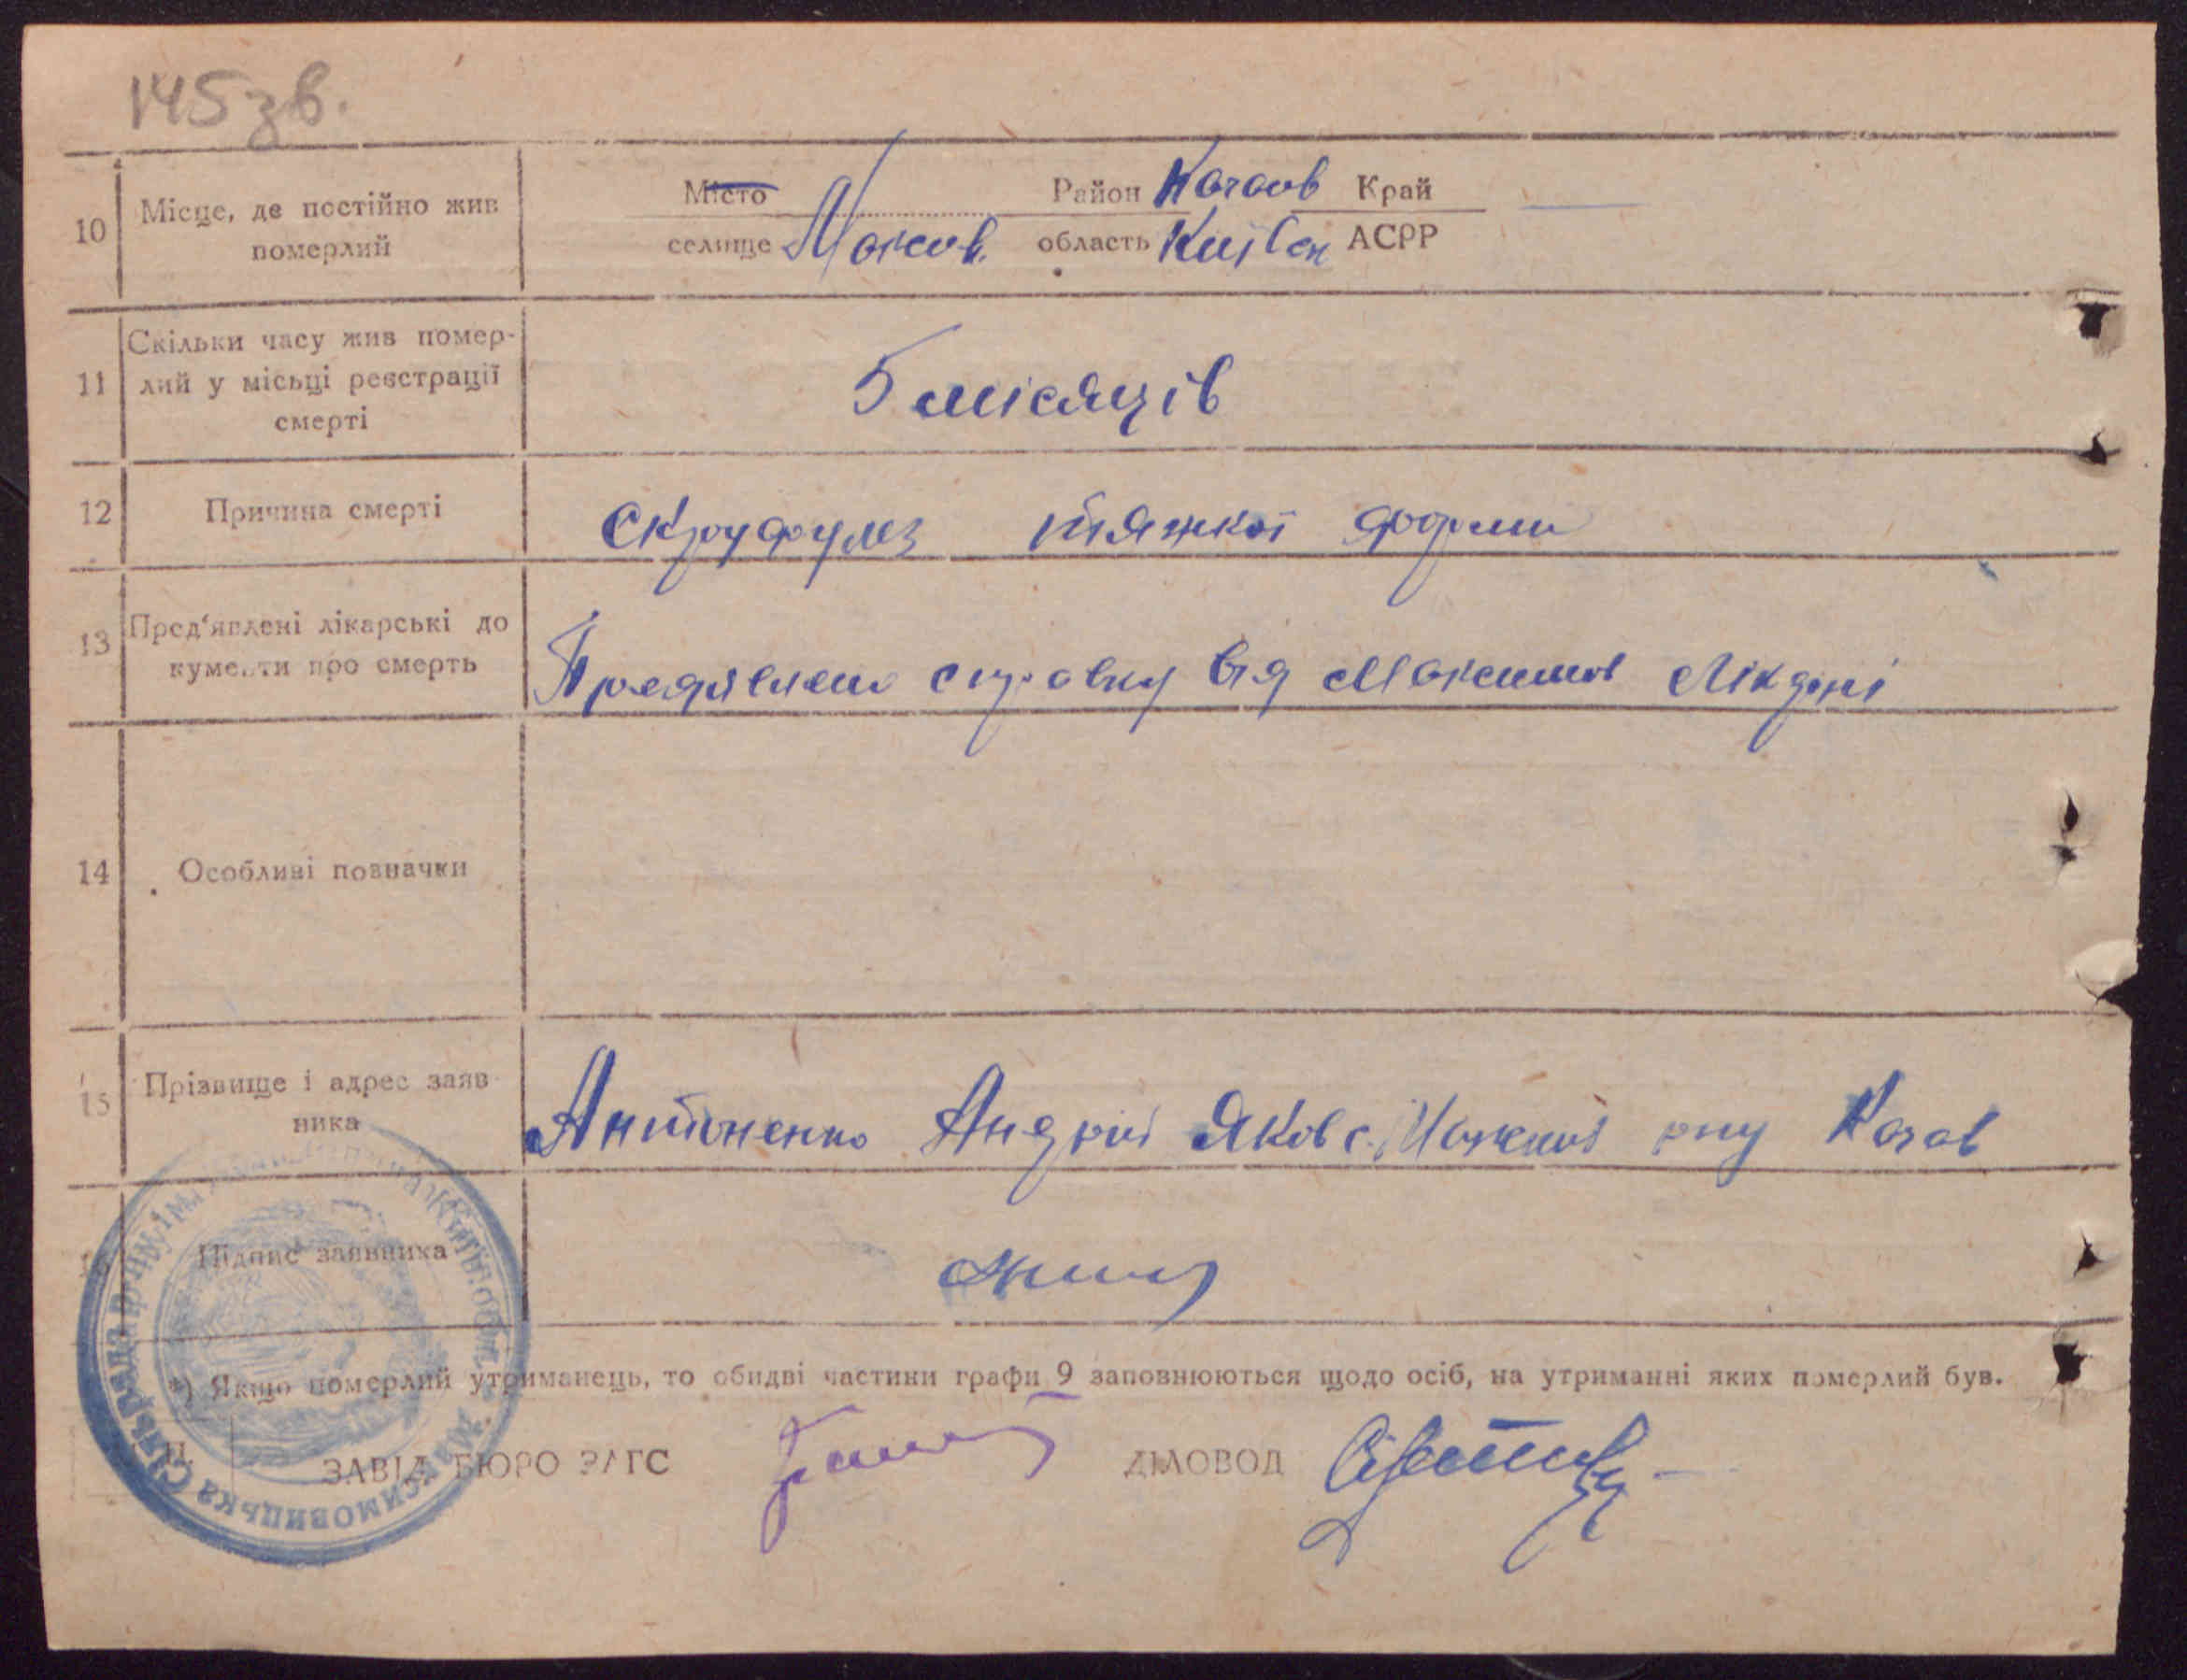 145 зв.
10 Місце, де постійно жив
померлий
Місто Район Край
селище область Київськ АСРР
11 Скільки часу жив помер-
лий у місьці реєстрації
смерті
5 місяців
12 Причина смерті
Скруфулез тяжкої форми
13 Пред'явлені лікарські до
кументи про смерть
справку від
14 Особливі позначки
15 Прізвище і адрес заяв-
ника
Антоненко Андрій Яков с.
16 Підпис заявника
*) Якщо померлий утриманець, то обидві частини графи 9 заповнюються щодо осіб, на утриманні яких померлий був.
ЗАВІД. БЮРО ЗАГС ДІЛОВОД
Максимовицька сільрада